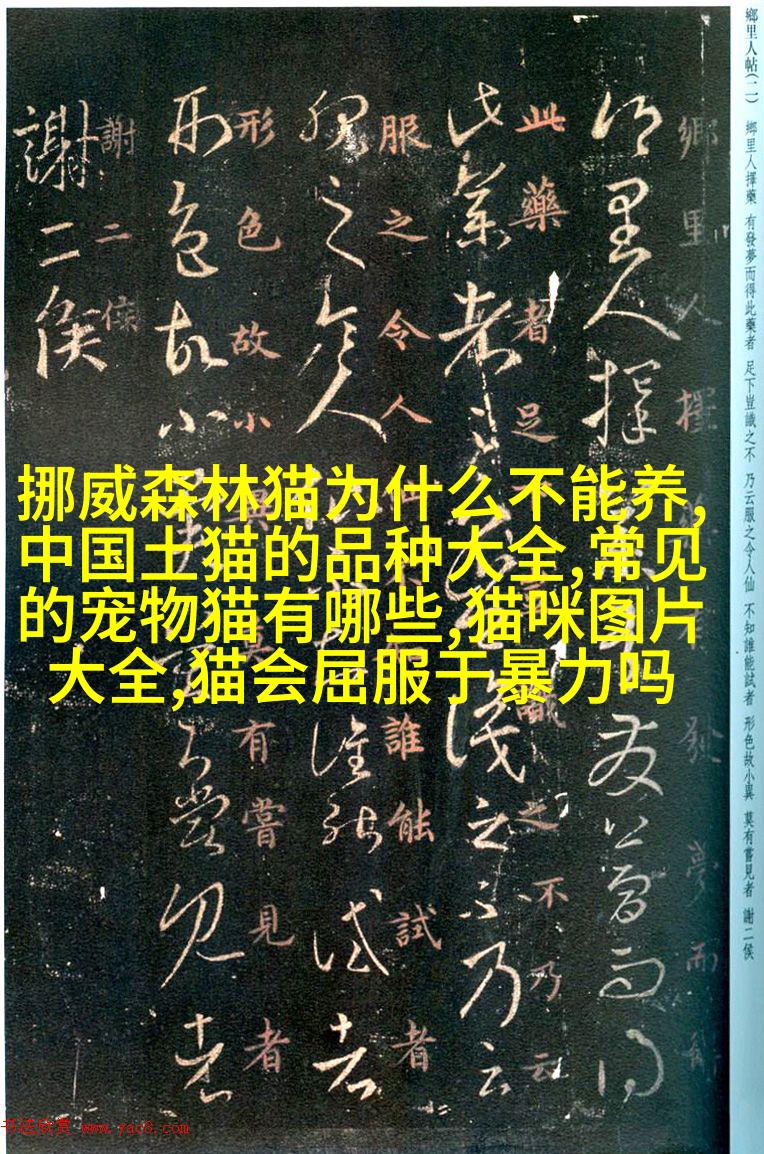 鄉里人帖(二) 鄉里人擇藥 有發夢而得此藥者 足下豈識之不 乃云服之令人仙 不知誰能試者 形色故小異 莫有嘗見者 謝二侯
鄉里人擇有發夢而得
鄉里人擇發夢而得
此藥者足識之不乃云
此藥者足識之不乃云
服之令人誰能試者
服之令人仙誰能試者
形色故小嘗見者
形色故小異有嘗見者
謝二侯
謝二侯
挪威森林猫为什么不能养,
中国土猫的品种大全,常见
的宠物猫有哪些,猫咪图片
大全,猫会屈服于暴力吗
书法欣赏 www.yac8.com